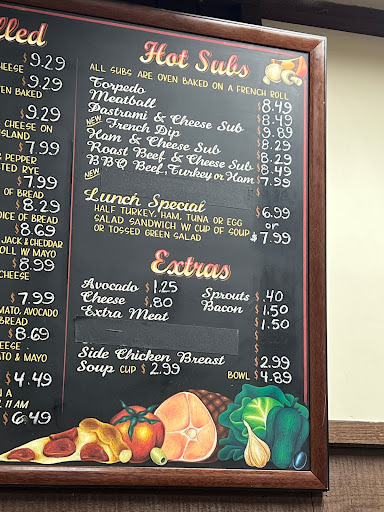 lled
HEESE $9.29
$9.29
EN BAKED
$9.29
CHEESE ON
ISLAND
$7.99
PEPPER
TED RYE
$7.99
OF BREAD
$8.29
OICE OF BREAD
$8.69
JACK & CHEDDAR
OLL W/ MAYO
$8.99
CHEESE
$7.99
MATO, AVOCADO
BREAD
$8.69
EESE
ATO & MAYO
$4.49
N A
11 AM
$6.49
Hot Subs
ALL SUBS ARE OVEN BAKED ON A FRENCH ROLL
Torpedo $8.49
Meatball $8.49
Pastrami & Cheese Sub $9.89
NEW French Dip $8.29
Ham & Cheese Sub $8.29
Roast Beef & Cheese Sub $8.49
NEW BBQ Beef, Turkey or Ham $7.99
Lunch Special $6.99
HALF TURKEY, HAM, TUNA OR EGG or
SALAD SANDWICH W/ CUP OF SOUP $7.99
OR TOSSED GREEN SALAD
Extras
Avocado $1.25 Sprouts $.40
Cheese $.80 Bacon $1.50
Extra Meat $1.50
Side Chicken Breast $2.99
Soup CUP $2.99 BOWL $4.89